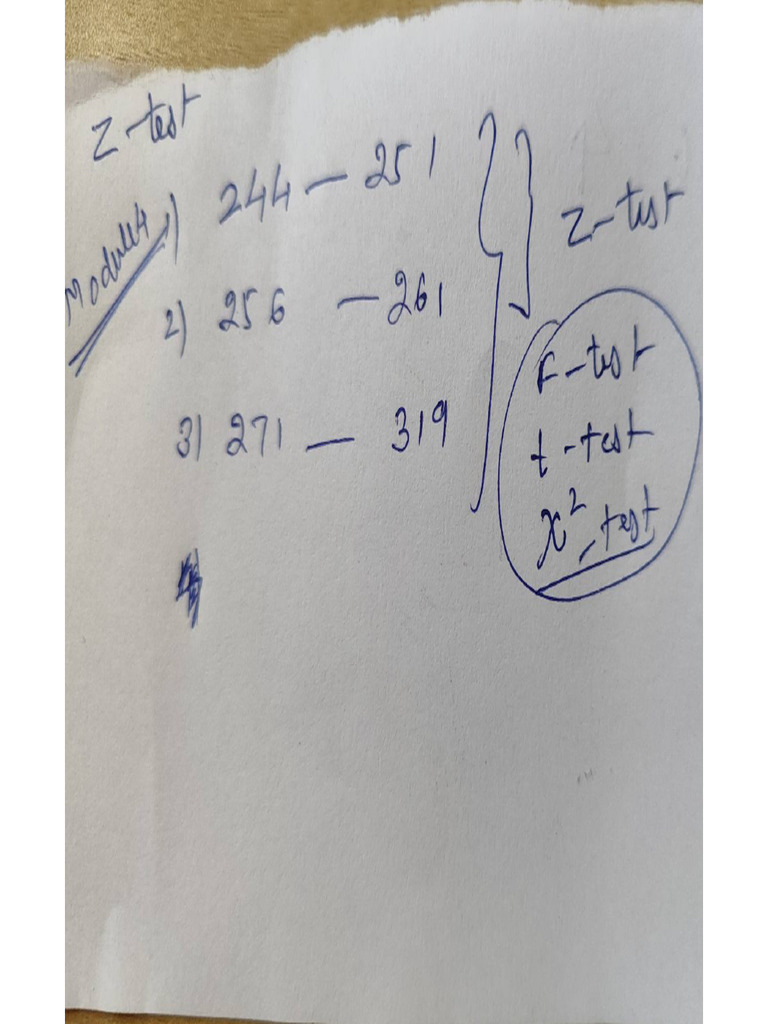 Z-test
Module 4
1) 244 — 251
2) 256 — 261
3) 271 — 319
Z-test
F-test
t-test
χ²-test